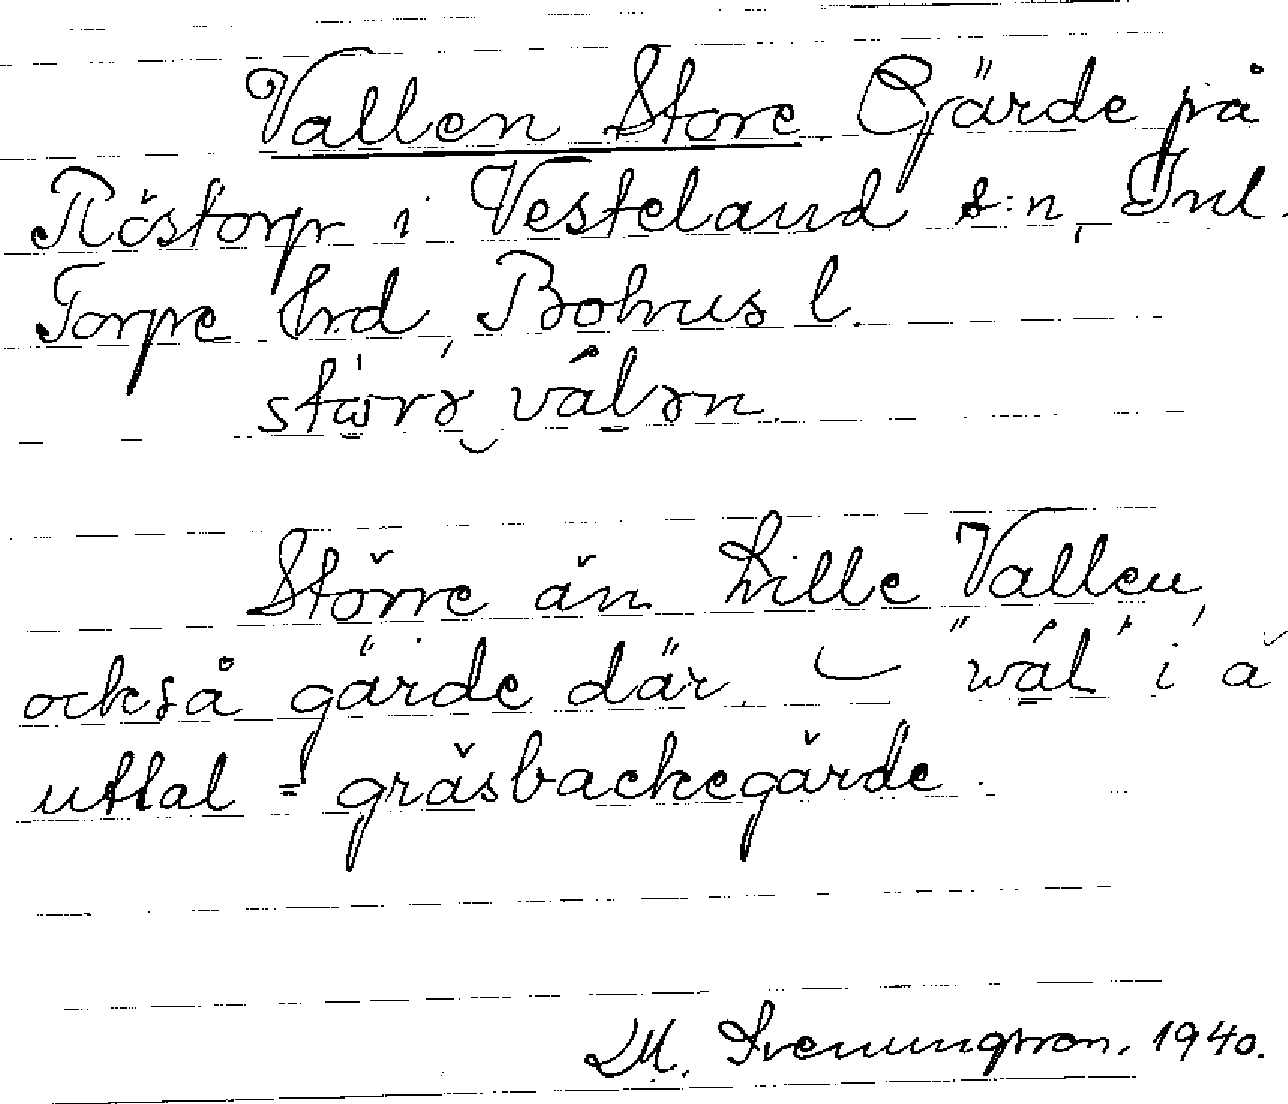 Vallen Store. Gärde på
Röstorp i Vesteland s:n, Inl.
Torpe hrd, Bohus l.
Större än Lille Vallen,
också gärde där. – "wál" i á
uttal = gräsbackegärde.
M. Svenungsson. 1940.